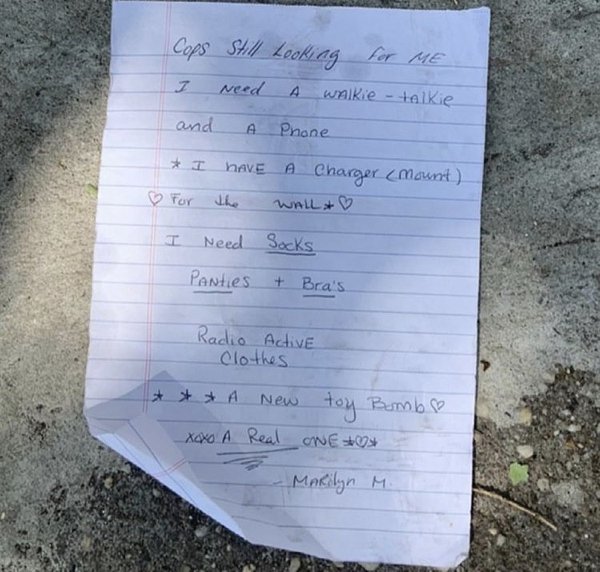 Cops Still Looking for ME
I Need A WALKie-tALKie
and A Phone
* I HAVE A Charger (Mount)
♡ For the WALL * ♡
I Need Socks
PANties + Bra's
Radio Active
Clothes
* * * A New toy Bomb ♡
xoxo A Real ONE * ♡ *
- MARilyn M.